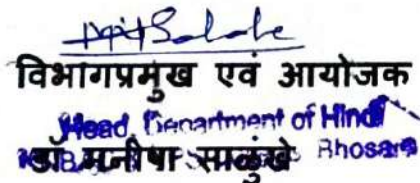 विभागप्रमुख एवं आयोजक
Head, Department of Hindi
डॉ मनीषा साळुंखे